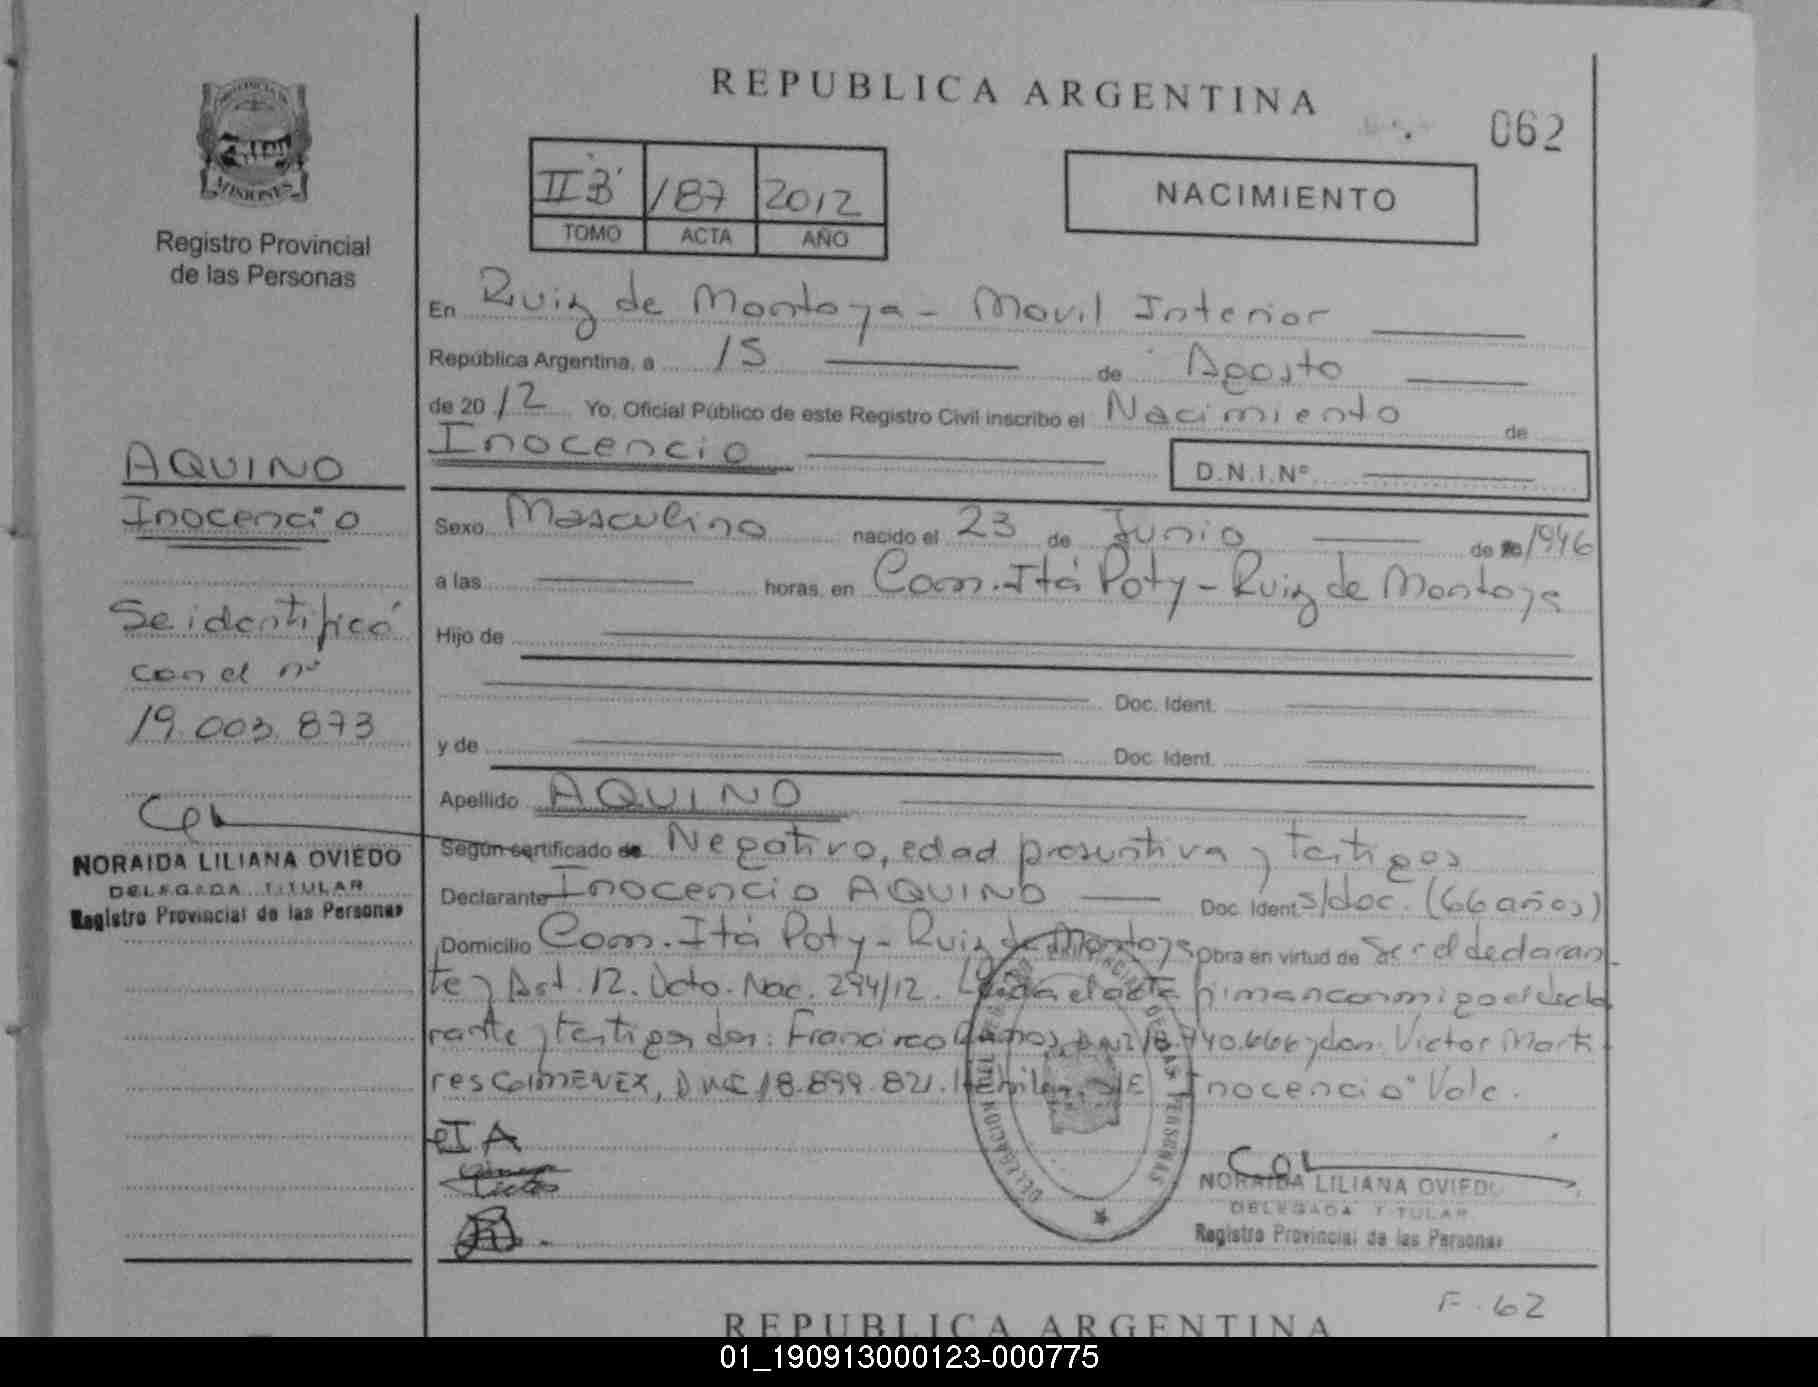 REPUBLICA ARGENTINA
062
II B' 187 2012
TOMO ACTA AÑO
NACIMIENTO
MISIONES
Registro Provincial
de las Personas
AQUINO
Inocencio
Se identificó
con el nº
19.003.873
NORAIDA LILIANA OVIEDO
DELEGADA TITULAR
Registro Provincial de las Personas
En Ruiz de Montoya - Movil Interior
República Argentina, a 15 de Agosto
de 2012 Yo, Oficial Público de este Registro Civil inscribo el Nacimiento de
Inocencio D.N.I.Nº
Sexo Masculino nacido el 23 de Junio de 1946
a las horas, en Com. Itá Poty - Ruiz de Montoya
Hijo de
Doc. Ident.
y de Doc. Ident.
Apellido AQUINO
Según certificado de Negativo, edad presuntiva y testigos
Declarante Inocencio AQUINO Doc. Ident. s/doc. (66 años)
Domicilio Com. Itá Poty - Ruiz de Montoya Obra en virtud de ser el declaran
te y Art. 12. Dcto. Nac. 294/12. Leída el acta firman conmigo el decla
rante y testigos don: Francisco DNI 18.740.666 y don: Victor Marti
res GIMENEZ, DNI 18.899.821. S/E "Inocencio" Vale.
IA
NORAIDA LILIANA OVIEDO
DELEGADA TITULAR
Registro Provincial de las Personas
F. 62
REPUBLICA ARGENTINA
01_190913000123-000775